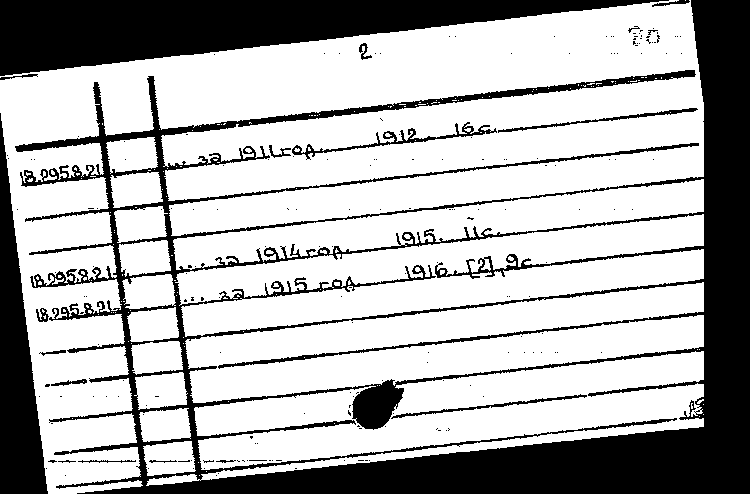 2
18.295.8.21 ... за 1911 год. 1912. 16с.
18.295.8.21-4 ... за 1914 год. 1915. 11с.
18.295.8.21-5 ... за 1915 год. 1916. [2], 9с